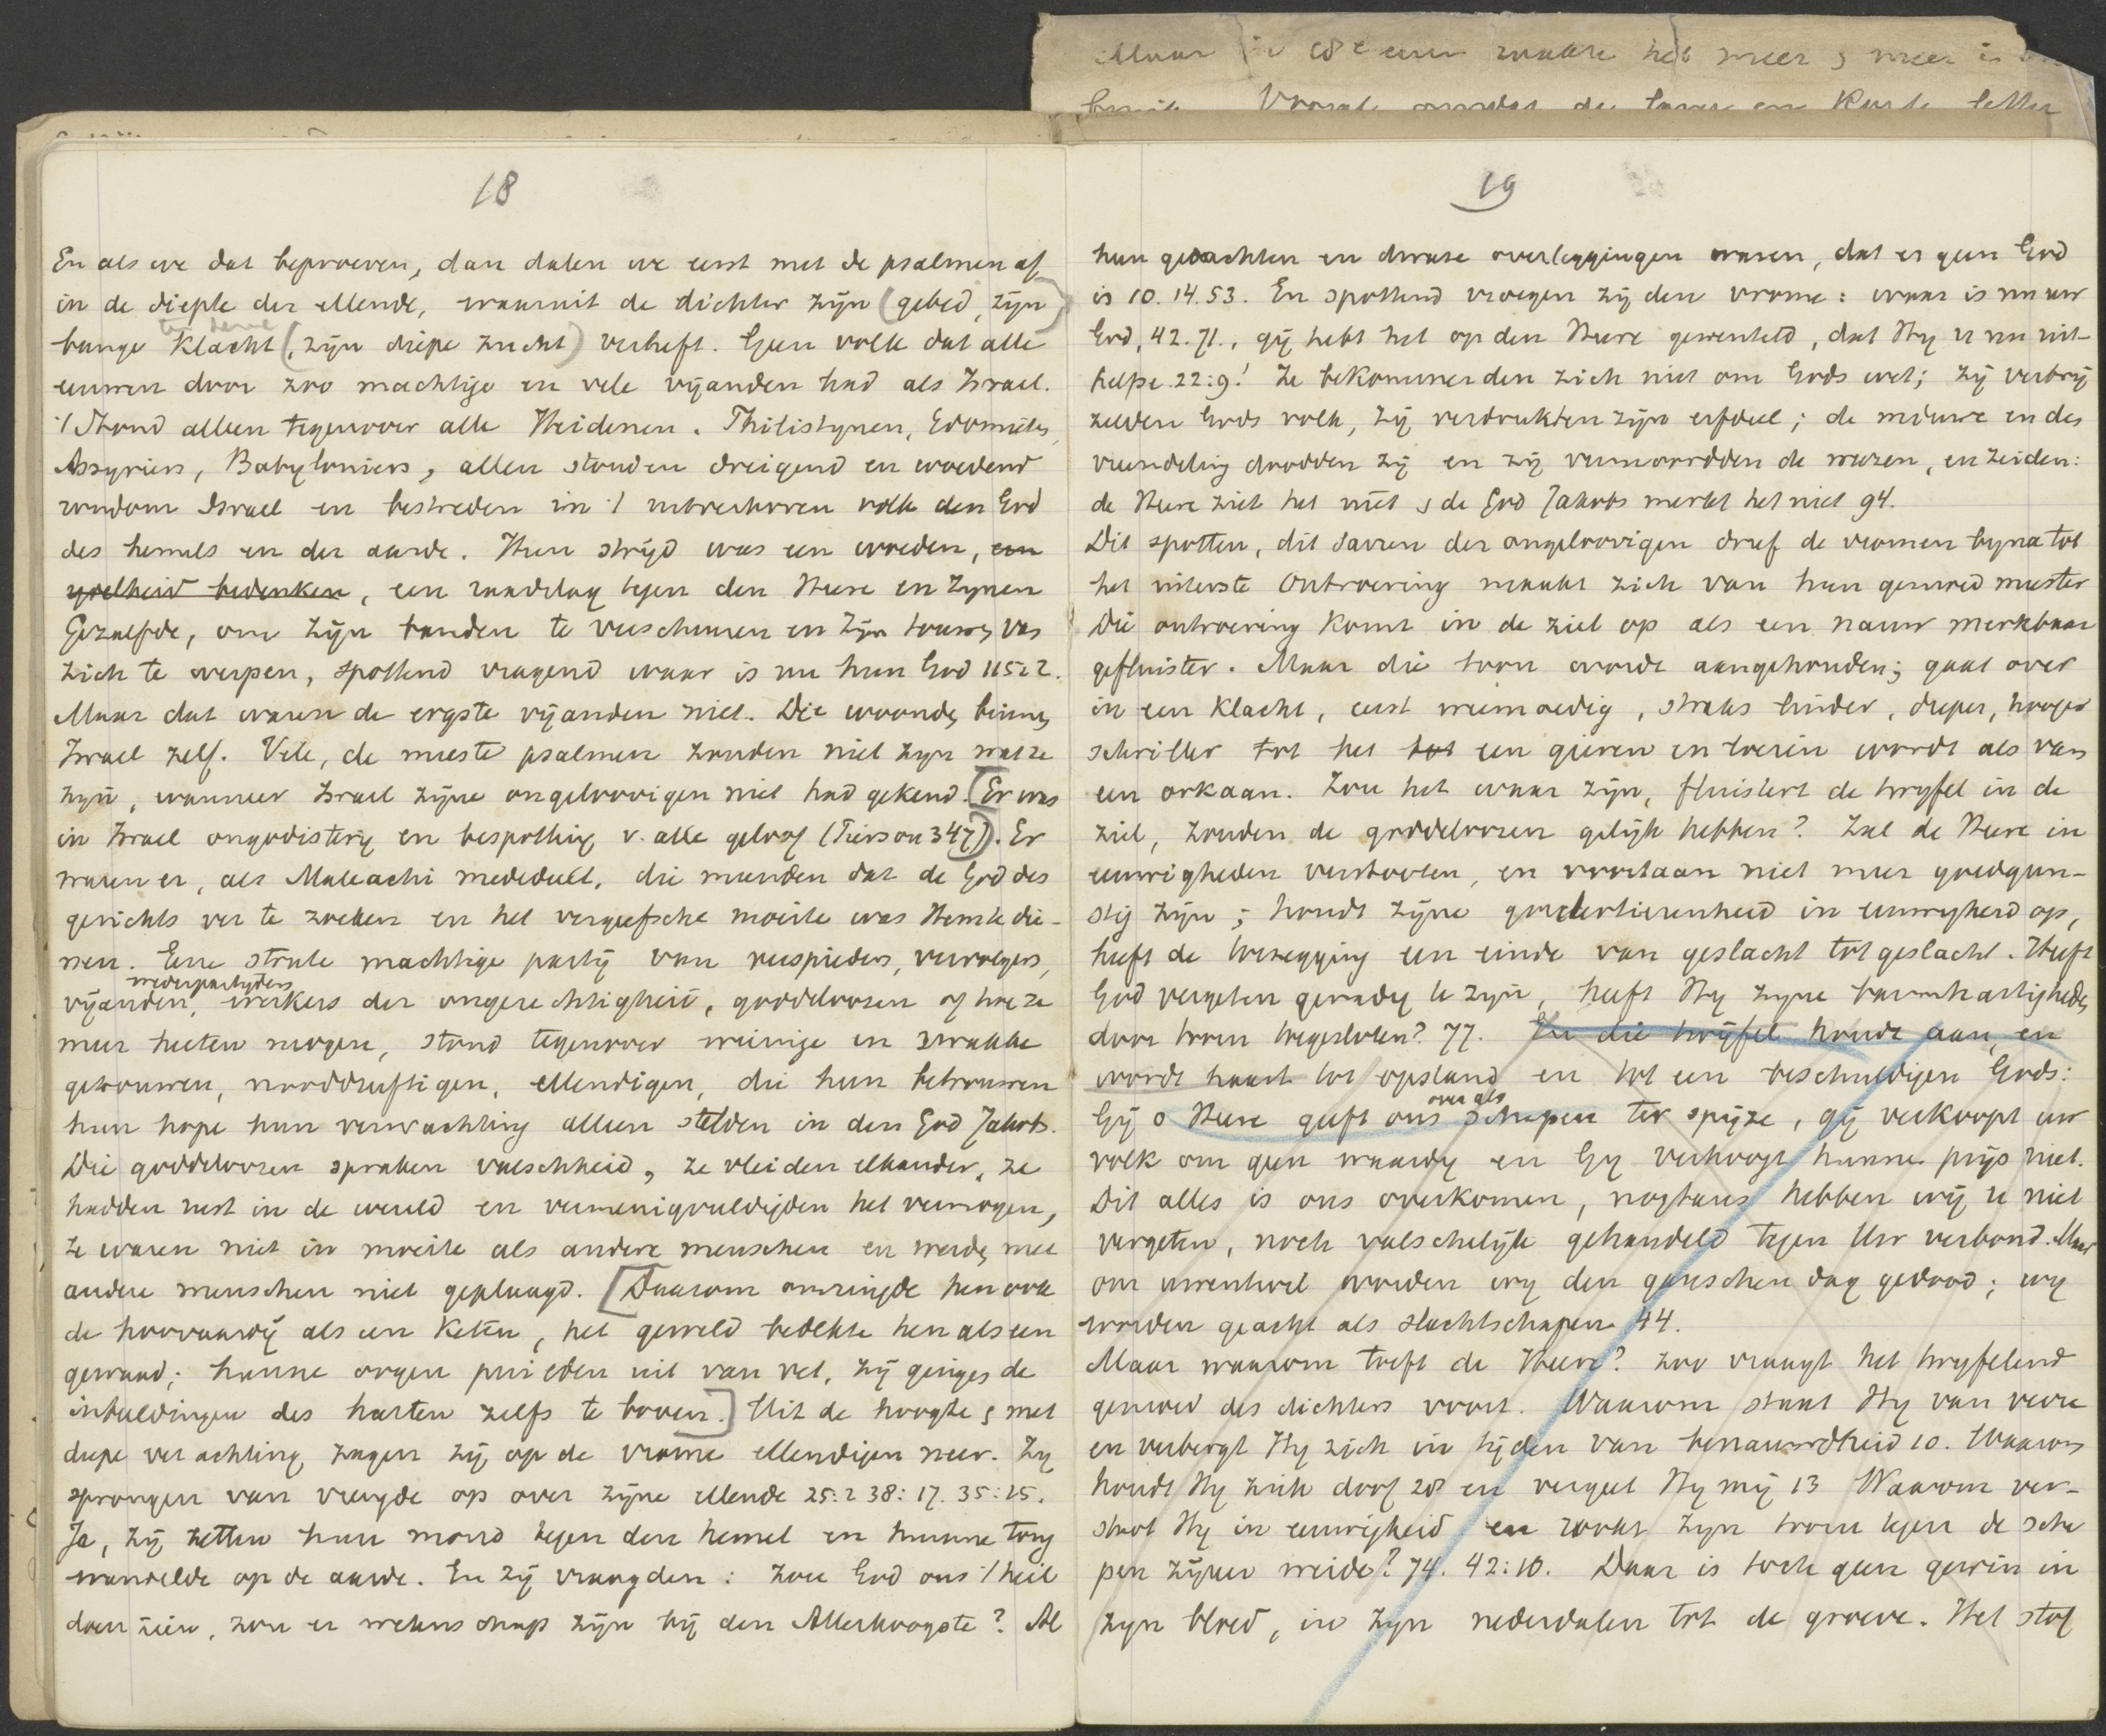 Maar in 18e eeuw raakte het meer & meer in
Vooral omdat de lange en Korte letter
18
En als we dat beproeven, dan dalen we eerst met de psalmen af
in de diepte der ellende, waaruit de dichter zijn (gebed, zijn)
bange Klacht (, zijn diepe zucht) verheft. Geen volk dat alle
eeuwen door zoo machtige en vele vijanden had als Israel.
't Stond alleen tegenover alle Heidenen. Philistijnen, Edomieten,
Assyriers, Babyloniers, allen stonden dreigend en woedend
rondom Israel en bestreden in 't uitverkoren volk den God
des hemels en der aarde. Hun strijd was een woeden, een
ijdelheid bedenken, een raadslag tegen den Heere en Zijnen
Gezalfde, om zijn banden te verscheuren en zijn touwen van
zich te werpen, spottend vragend waar is nu hun God 115:2.
Maar dat waren de ergste vijanden niet. Die woonden binnen
Israel zelf. Vele, de meeste psalmen zouden niet zijn wat ze
zijn, wanneer Israel zijne ongeloovigen niet had gekend. [Er was
in Israel ongodisterij en bespotting v. alle geloof (Pierson 347)]. Er
waren er, als Maleachi mededeelt, die meenden dat de God des
gerichts ver te zoeken en het vergeefsche moeite was Hem te die-
nen. Eene sterke machtige partij van verspieders, vervolgers,
wederpartijders
vijanden, werkers der ongerechtigheid, goddeloozen of hoe ze
meer heeten mogen, stond tegenover weinige en zwakke
getrouwen, nooddruftigen, ellendigen, die hun betrouwen
hun hope hun verwachting alleen stelden in den God Jakobs.
Die goddeloozen spraken valschheid, ze vleiden elkander, ze
hadden rust in de wereld en vermenigvuldigden het vermogen,
ze waren niet in moeite als andere menschen en werden met
andere menschen niet geplaagd. [Daarom omringde hen ook
de hoovaardij als een Keten, het geweld bedekte hen als een
gewaad; hunne oogen puilden uit van vet, zij gingen de
inbeeldingen des harten zelfs te boven.] Uit de hoogte & met
diepe verachting zagen zij op de vrome ellendigen neer. Zij
sprongen van vreugde op over zijne ellende 25:2 38:17. 35:25.
Ja, zij zetten hun mond tegen den hemel en hunne tong
wandelde op de aarde. En zij vraagden: zou God ons 't heil
doen zien, zou er wetenschap zijn bij den Allerhoogste? Al
19
hun gedachten en dwaze overleggingen waren, dat er geen God
is 10. 14. 53. En spottend vroegen zij den vrome: waar is nu uw
God, 42. 71., gij hebt het op den Heere gewenteld, dat Hij u nu uit-
helpe. 22:9! Ze bekommerden zich niet om Gods wet; zij verbrij
zelden Gods volk, zij verdrukten zijn erfdeel; de weduwe en des
vreemdeling doodden zij en zij vermoordden de weezen, en zeiden:
de Heere ziet het niet & de God Jakobs merkt het niet 94.
Dit spotten, dit sarren der ongeloovigen dreef de vromen bijna tot
het uiterste Ontroering maakt zich van hun gemoed meester
Die ontroering Komt in de ziel op als een nauw merkbaar
gefluister. Maar die toon wordt aangehouden; gaat over
in een Klacht, eerst weemoedig, straks luider, dieper, hooger
schriller tot het tot een gieren en loeien wordt als van
een orkaan. Zou het waar zijn, fluistert de twijfel in de
ziel, zouden de goddeloozen gelijk hebben? Zal de Heere in
eeuwigheden verstooten, en voortaan niet meer goedgun-
stig zijn; houdt zijne goedertierenheid in eeuwigheid op,
heeft de toezegging een einde van geslacht tot geslacht. Heeft
God vergeten genadig te zijn, heeft Hij zijne barmhartigheden
door toorn toegesloten? 77. En die twijfel houdt aan, en
wordt haast tot opstand en tot een beschuldigen Gods:
over als
Gij o Heere geeft ons schapen ter spijze, gij verkoopt uw
volk om geen waardij en Gij verhoogt hunne prijs niet.
Dit alles is ons overkomen, nogtans hebben wij U niet
vergeten, noch valschelijk gehandeld tegen Uw verbond. Maar
om uwentwil worden wij den ganschen dag gedood; wij
worden geacht als slachtschapen 44.
Maar waarom treft de Heere? zoo vraagt het twijfelend
gemoed des dichters voort. Waarom staat Hij van verre
en verbergt Hij zich in tijden van benauwdheid 10. Waarom
houdt Hij zich doof 28 en vergeet Hij mij 13 Waarom ver-
stoot Hij in eeuwigheid en rookt zijn toorn tegen de scha
pen zijner weide? 74. 42:10. Daar is toch geen gewin in
zijn bloed, in zijn nederdalen tot de groeve. Het stof